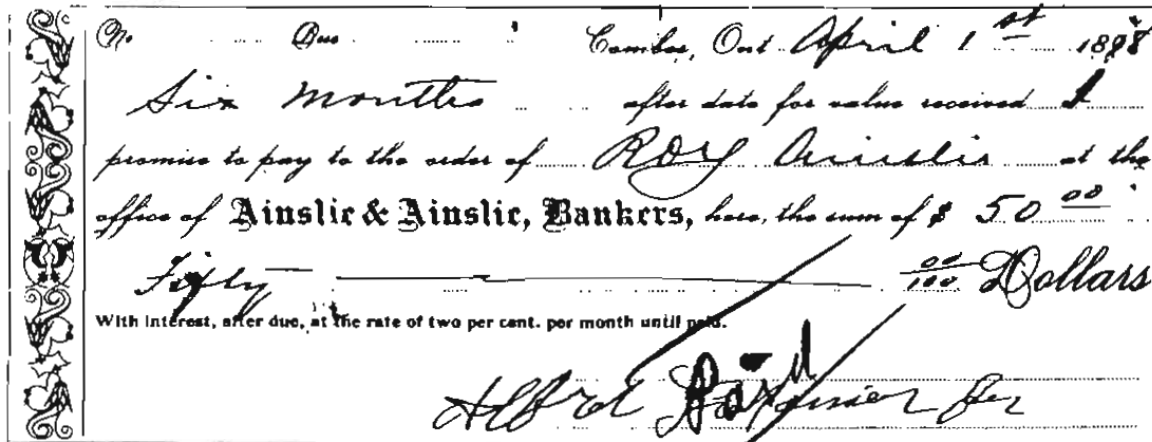 No Due Comber, Ont April 1st 1898
Six months after date for value received I
promise to pay to the order of Roy Ainslie at the
office of Ainslie & Ainslie, Bankers, here, the sum of $ 50 00
Fifty 00/100 Dollars
With interest, after due, at the rate of two per cent. per month until paid.
Paid